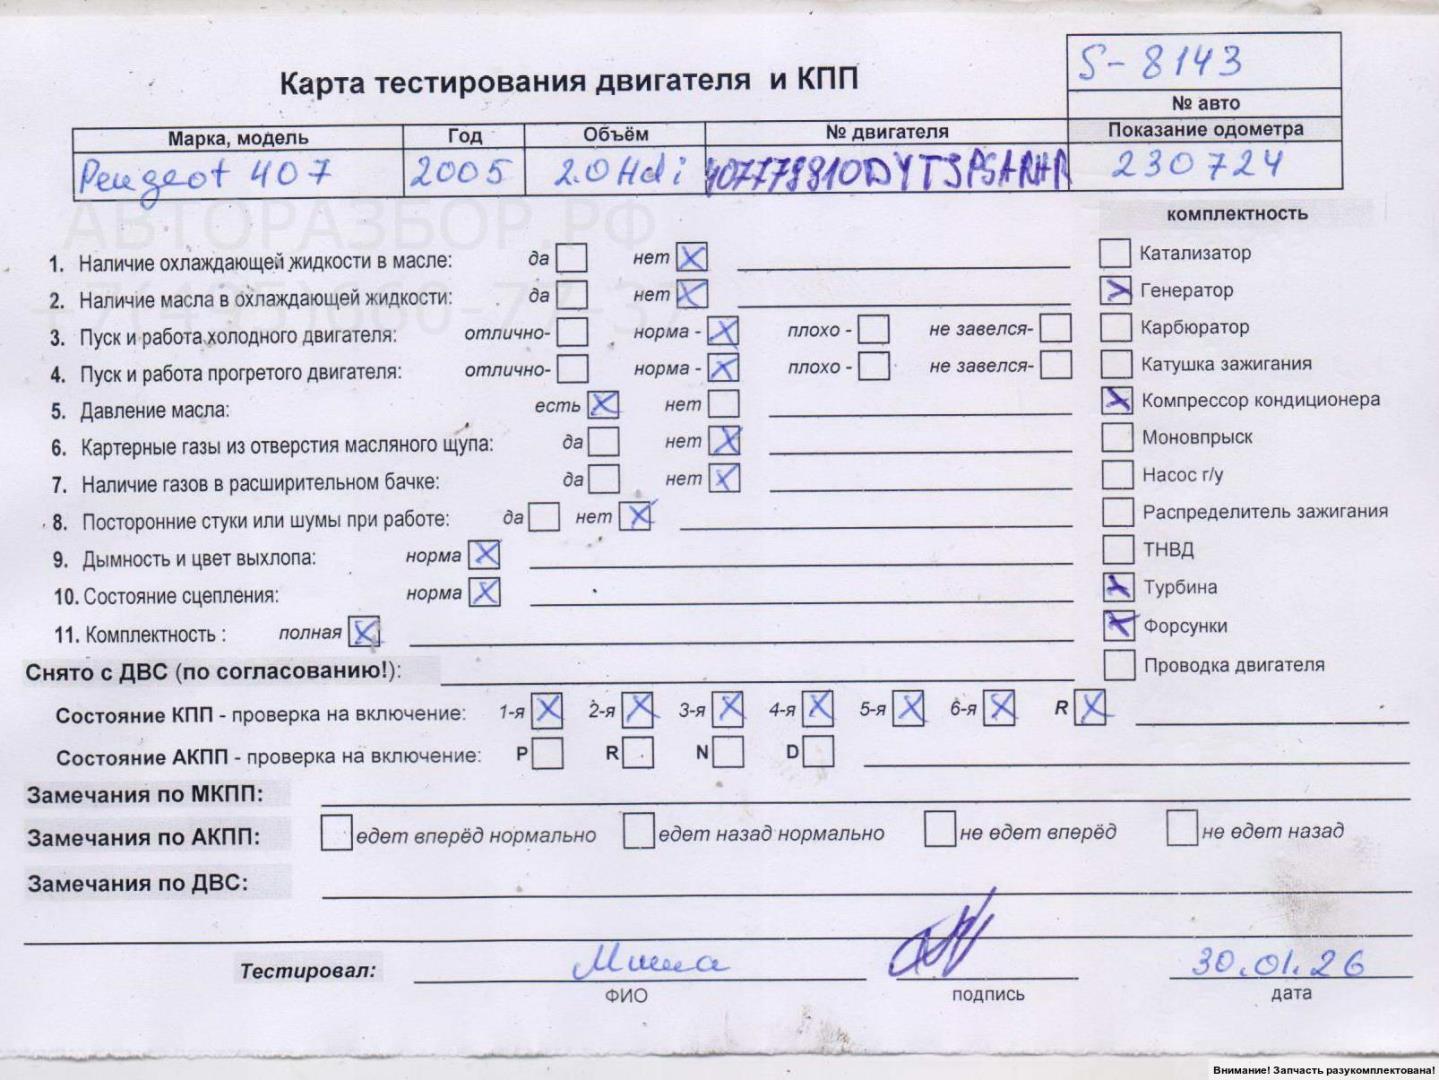 S-8143
Карта тестирования двигателя и КПП
№ авто
Марка, модель Год Объём № двигателя Показание одометра
Peugeot 407 2005 2.0 Hdi 230724
АВТОРАЗБОР.РФ
комплектность
1. Наличие охлаждающей жидкости в масле: да нет
Катализатор
2. Наличие масла в охлаждающей жидкости: да нет
Генератор
3. Пуск и работа холодного двигателя: отлично- норма - плохо - не завелся-
Карбюратор
4. Пуск и работа прогретого двигателя: отлично- норма - плохо - не завелся-
Катушка зажигания
5. Давление масла: есть нет
Компрессор кондиционера
6. Картерные газы из отверстия масляного щупа: да нет
Моновпрыск
7. Наличие газов в расширительном бачке: да нет
Насос г/у
8. Посторонние стуки или шумы при работе: да нет
Распределитель зажигания
9. Дымность и цвет выхлопа: норма
ТНВД
10. Состояние сцепления: норма
Турбина
11. Комплектность : полная
Форсунки
Снято с ДВС (по согласованию!):
Проводка двигателя
Состояние КПП - проверка на включение: 1-я 2-я 3-я 4-я 5-я 6-я R
Состояние АКПП - проверка на включение: P R N D
Замечания по МКПП:
Замечания по АКПП: едет вперёд нормально едет назад нормально не едет вперёд не едет назад
Замечания по ДВС:
Тестировал: Миша 30.01.26
ФИО подпись дата
Внимание! Запчасть разукомплектована!